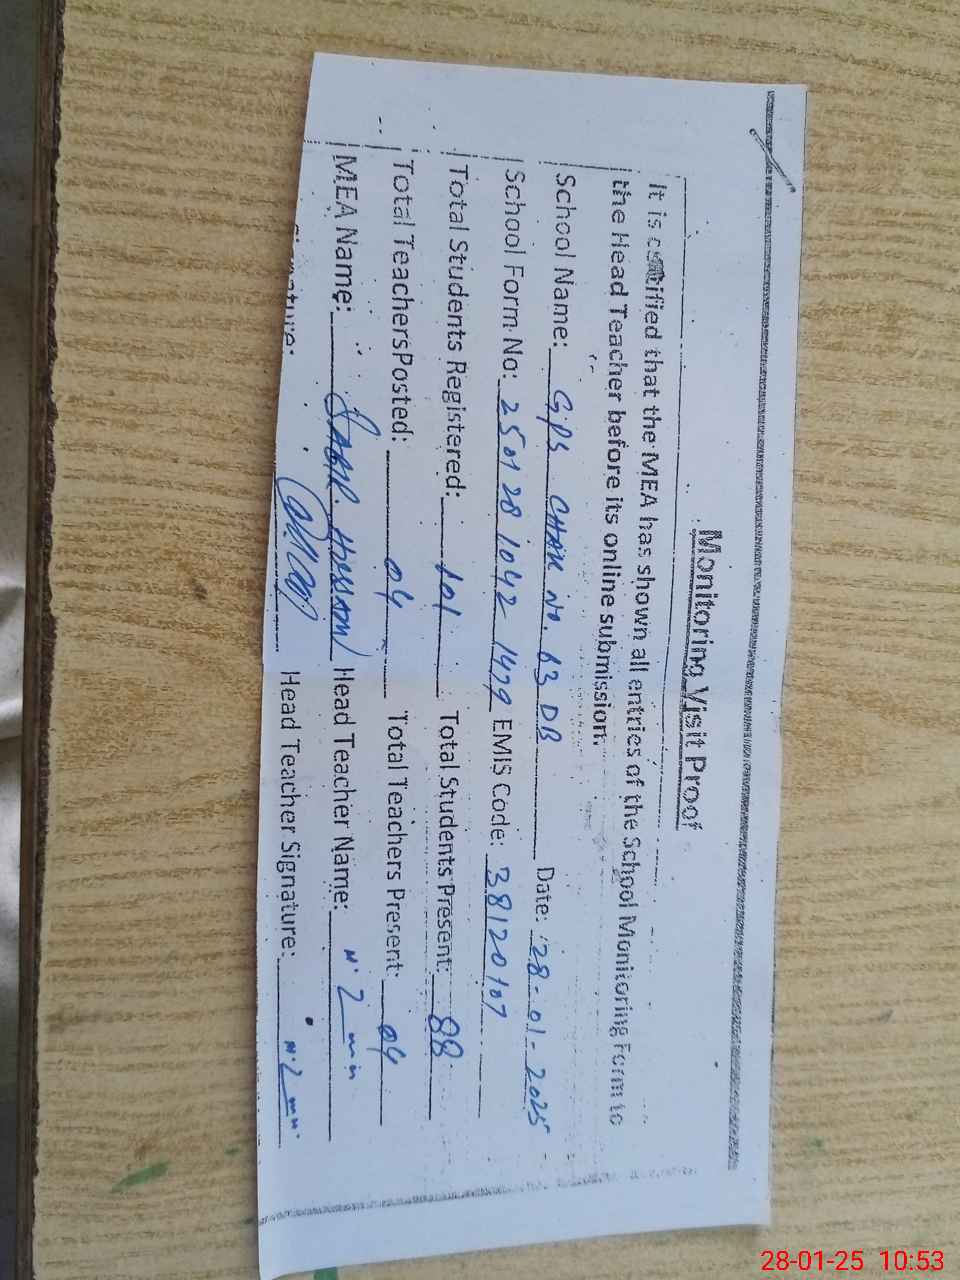 Monitoring Visit Proof
It is certified that the MEA has shown all entries of the School Monitoring Form to
the Head Teacher before its online submission.
School Name: GPS CHAK NO. 63 DB Date: 28-01-2025
School Form No: 2501281042 1479 EMIS Code: 38120107
Total Students Registered: 101 Total Students Present: 88
Total Teachers Posted: 04 Total Teachers Present: 04
MEA Name: SABIR HUSSAIN Head Teacher Name:
Signature: Head Teacher Signature:
28-01-25 10:53